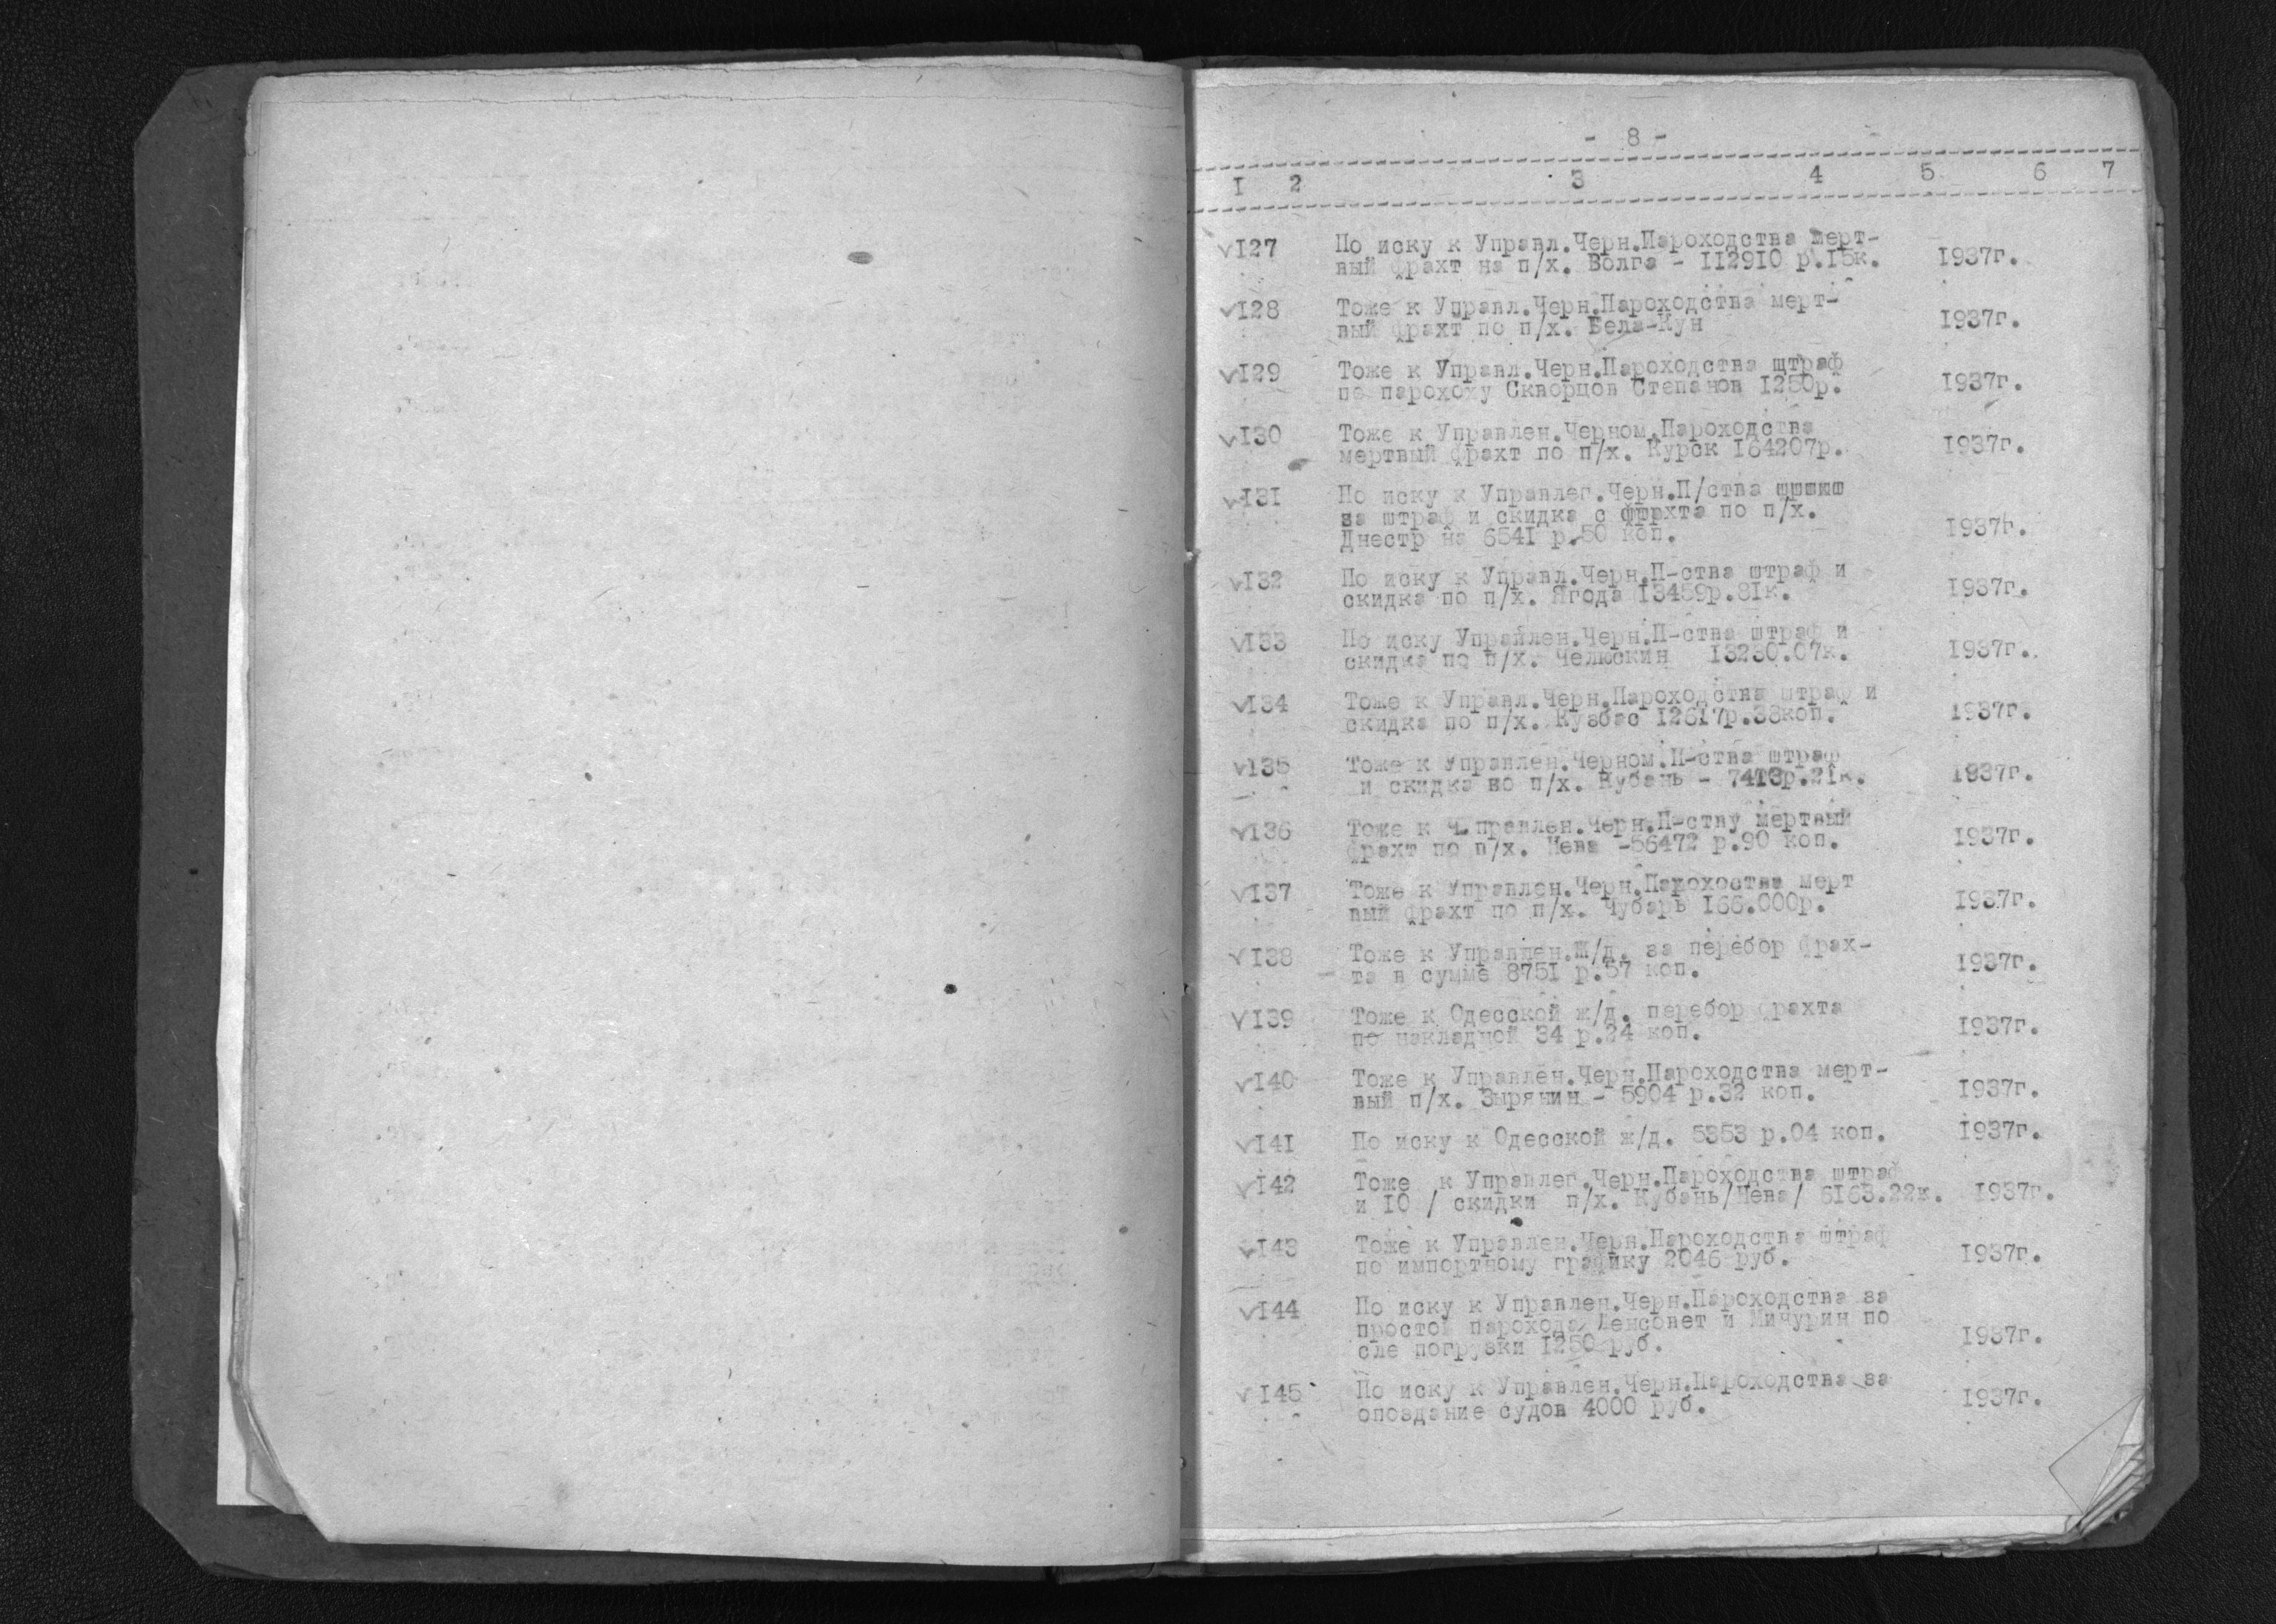 - 8 -
I 2 3 4 5 6 7
vI27 По иску к Управл.Черн.Пароходства мерт-
вый фрахт на п/х. Волга - II29I0 р.I5к. I937г.
vI28 Тоже к Управл.Черн.Пароходства мерт-
вый фрахт по п/х. Бела-Кун I937г.
vI29 Тоже к Управл.Черн.Пароходства штраф
по парохоху Скворцов Степанов I250р. I937г.
vI30 Тоже к Управлен.Черном.Пароходства
мертвый фрахт по п/х. Курск I64207р. I937г.
vI3I По иску к Управлег.Черн.П/ства
за штраф и скидка с фрахта по п/х.
Днестр на 654I р.50 коп. I937г.
vI32 По иску к Управл.Черн.П-ства штраф и
скидка по п/х. Ягода I3459р.8Iк. I937г.
vI33 По иску Управлен.Черн.П-ства штраф и
скидка по п/х. Челюскин I3230.07к. I937г.
vI34 Тоже к Управл.Черн.Пароходства штраф и
скидка по п/х. Кузбас I26I7р.38коп. I937г.
vI35 Тоже к Управлен.Черном.П-ства штраф
и скидка по п/х. Кубань - 74I3р.2Iк. I937г.
vI36 Тоже к правлен.Черн.П-ству мертвый
фрахт по п/х. Нева -56472 р.90 коп. I937г.
vI37 Тоже к Управлен.Черн.Парохоства мерт
вый фрахт по п/х. Чубарь I66.000р. I937г.
vI38 Тоже к Управлен.Ж/д. за перебор фрах-
та в сумме 875I р.57 коп. I937г.
vI39 Тоже к Одесской ж/д. перебор фрахта
по накладной 34 р.24 коп. I937г.
vI40 Тоже к Управлен.Черн.Пароходства мерт-
вый п/х. Зырянин - 5904 р.32 коп. I937г.
vI4I По иску к Одесской ж/д. 5353 р.04 коп. I937г.
vI42 Тоже к Управлег.Черн.Пароходства штраф
и I0 / скидки п/х. Кубань/Нева/ 6I63.22к. I937г.
vI43 Тоже к Управлен.Черн.Пароходства штраф
по импортному графику 2046 руб. I937г.
vI44 По иску к Управлен.Черн.Пароходства за
простой парохода Ленсовет и Мичурин по
сле погрузки I250 руб. I937г.
vI45 По иску к Управлен.Черн.Пароходства за
опоздание судов 4000 руб. I937г.